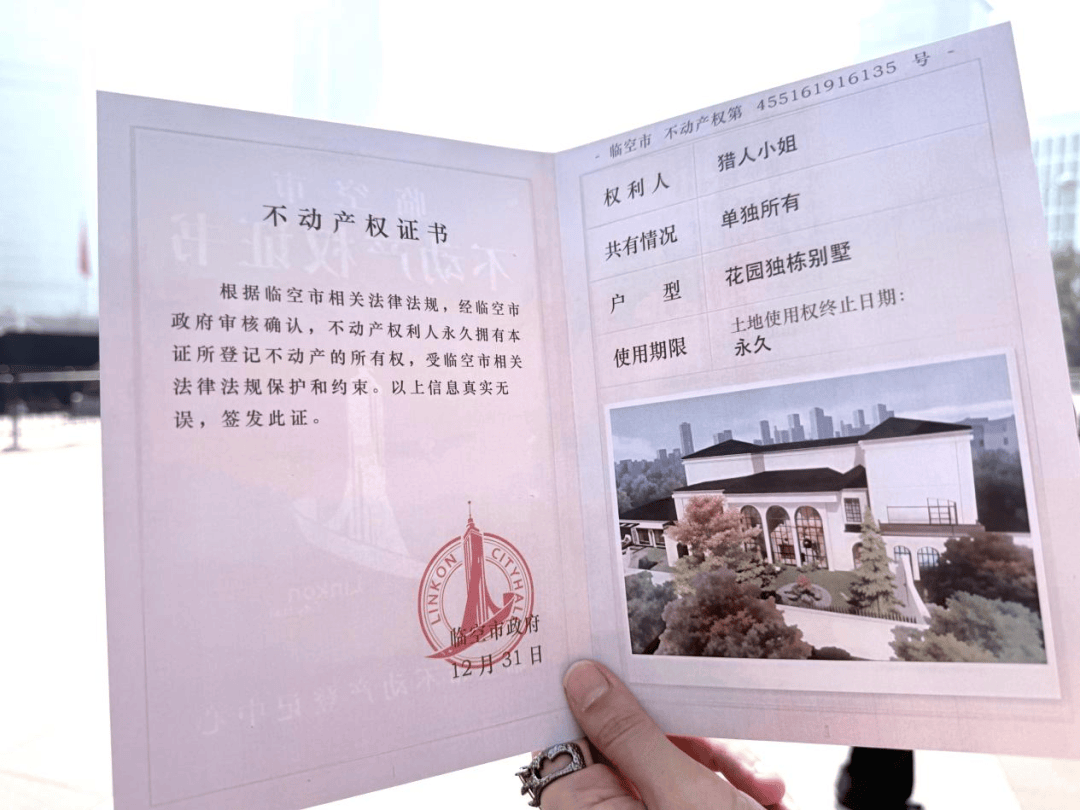 不动产权证书
根据临空市相关法律法规，经临空市
政府审核确认，不动产权利人永久拥有本
证所登记不动产的所有权，受临空市相关
法律法规保护和约束。以上信息真实无
误，签发此证。
LINKON CITYHALL
临空市政府
12月31日
- 临空市 不动产权第 455161916135 号 -
权利人 猎人小姐
共有情况 单独所有
户型 花园独栋别墅
使用期限 土地使用权终止日期：
永久